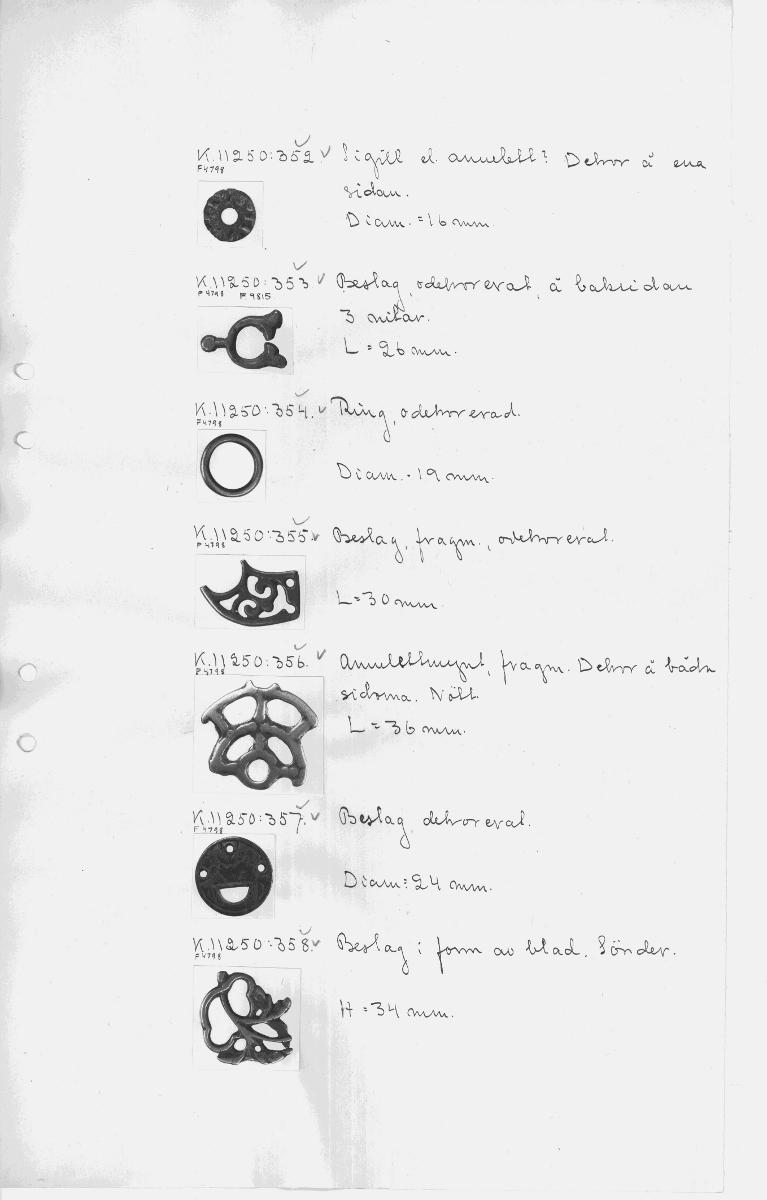 K.11250:352 Sigill el. amulett? Dekor å ena
F4798
sidan.
Diam. = 16 mm.
K.11250:353 Beslag, odekorerat, å baksidan
F4798 F9815
3 nitar.
L = 26 mm.
K.11250:354. Ring, odekorerad.
F4798
Diam. = 19 mm.
K.11250:355. Beslag, fragm., odekorerat.
F4798
L = 30 mm.
K.11250:356. Amulettmynt, fragm. Dekor å båda
F4798
sidorna. Nött.
L = 36 mm.
K.11250:357. Beslag, dekorerat.
F4798
Diam = 24 mm.
K.11250:358. Beslag i form av blad. Sönder.
F4798
H = 34 mm.